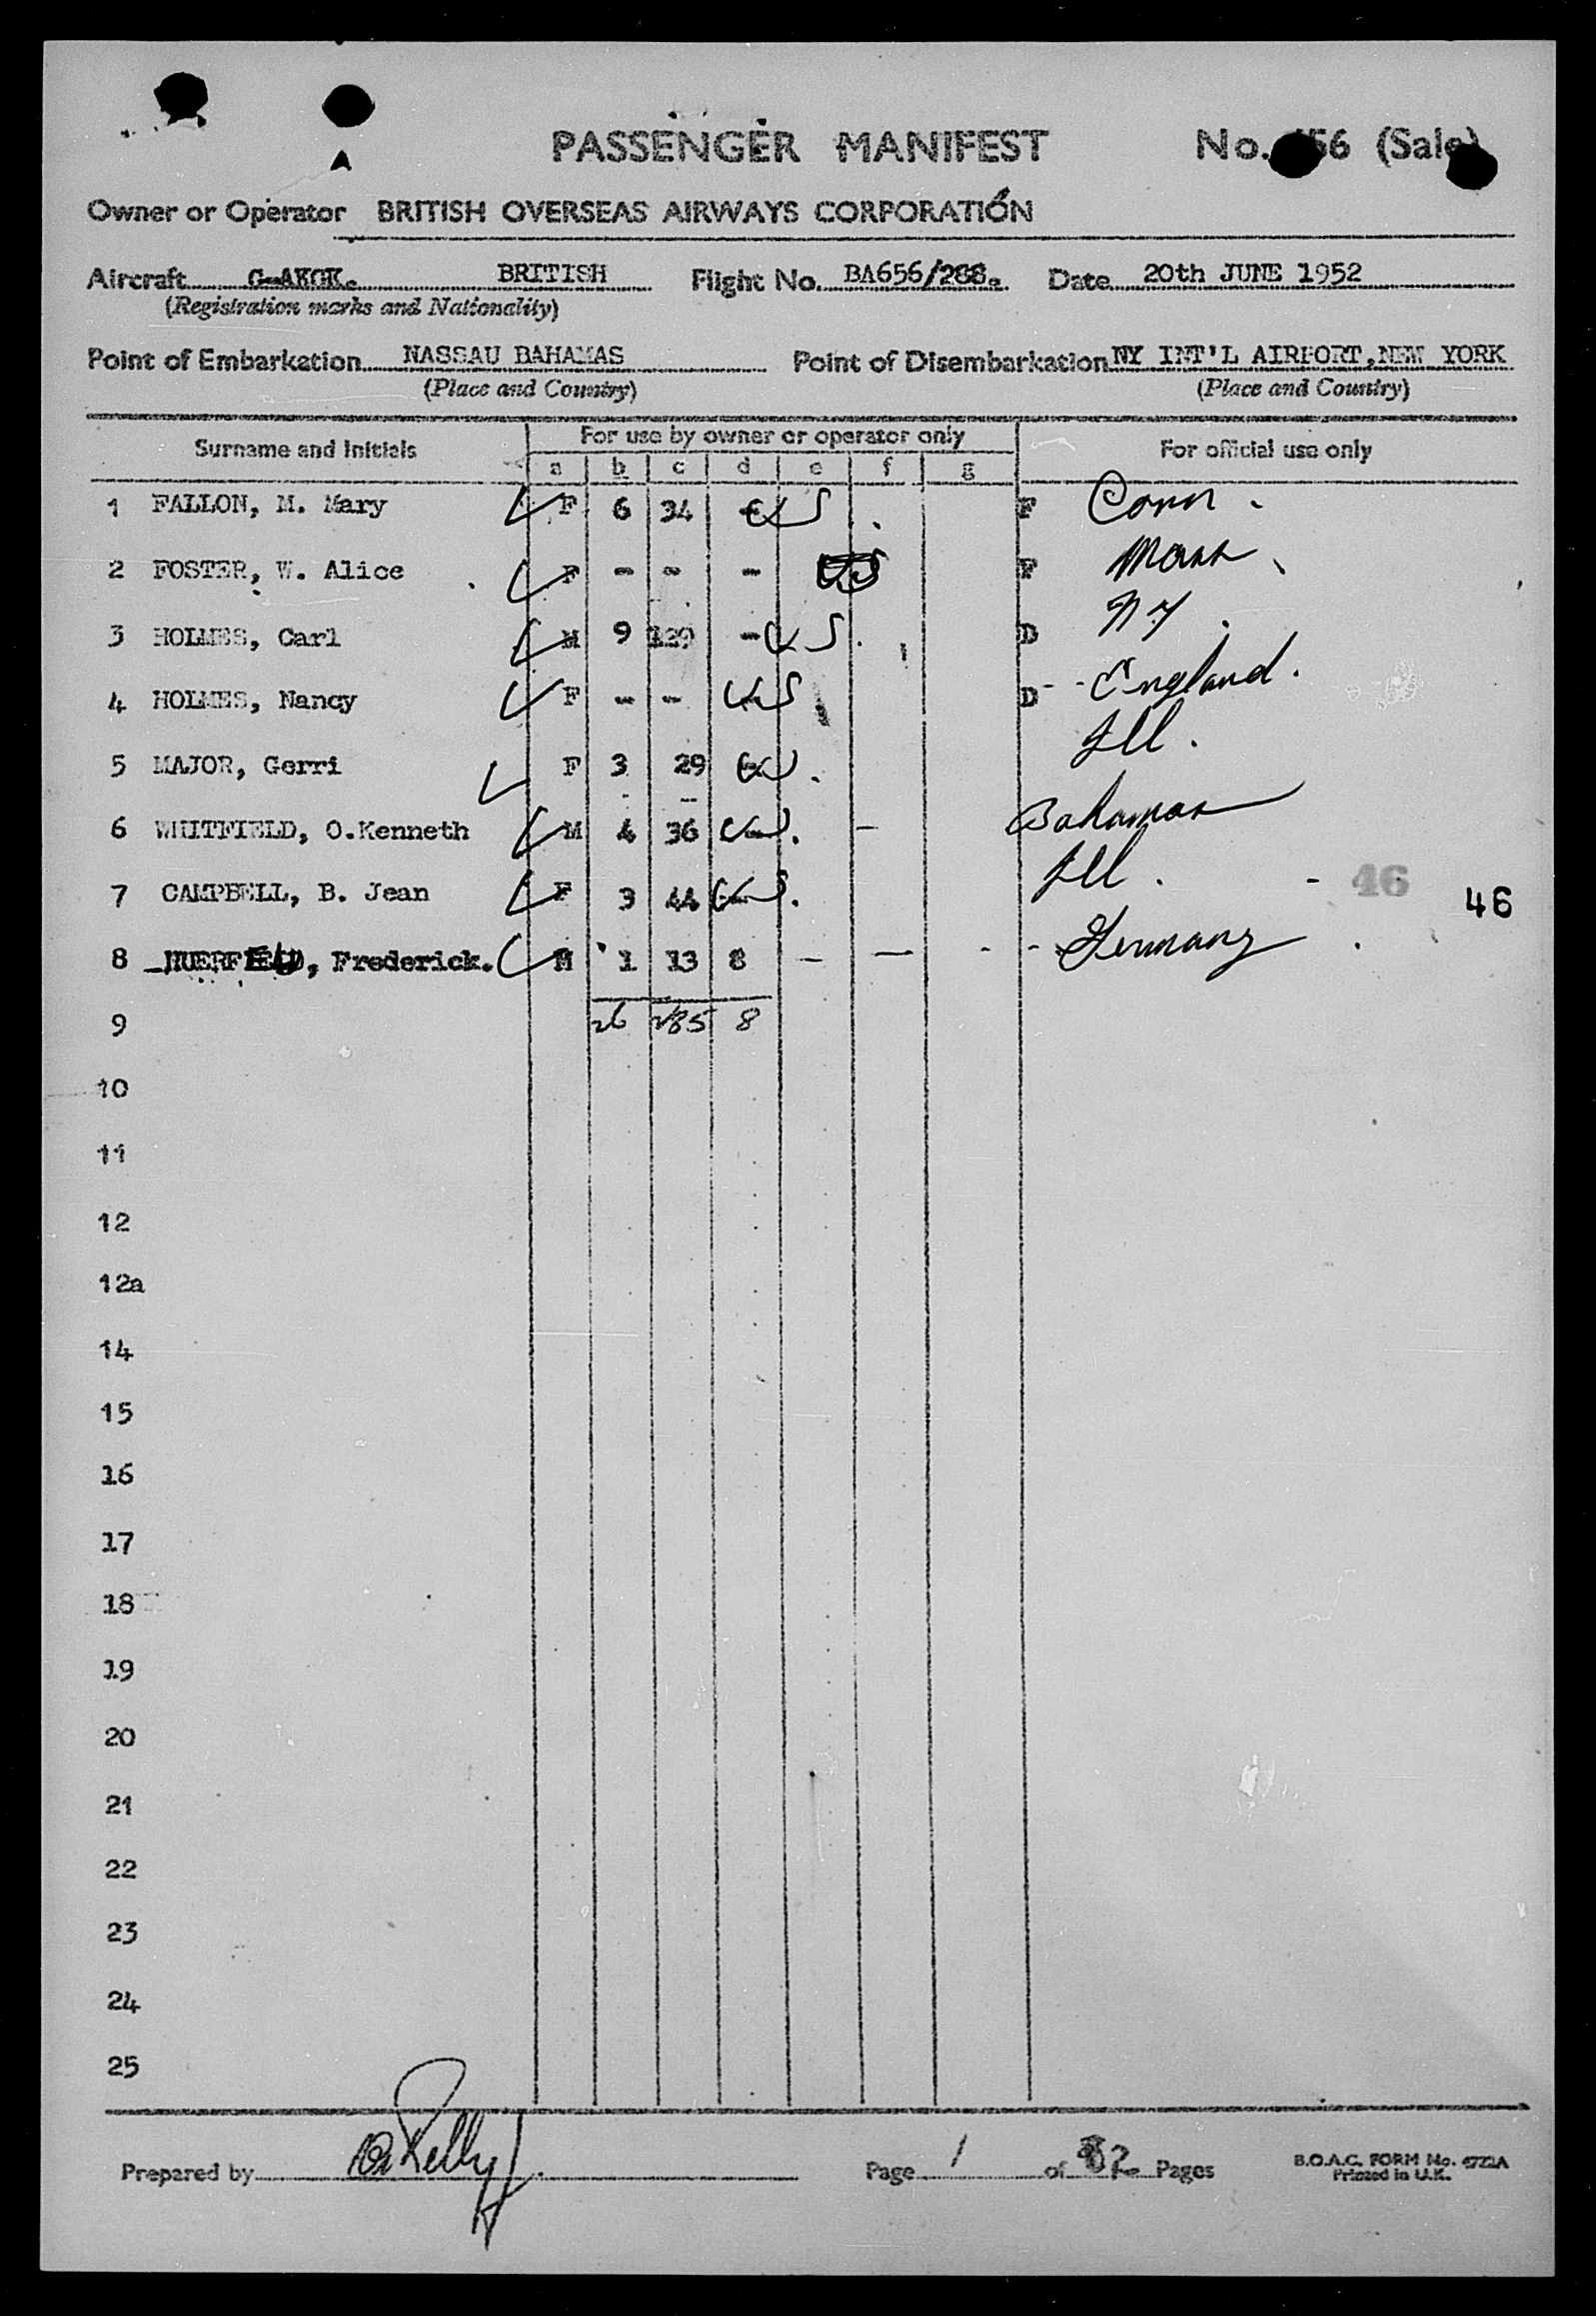 PASSENGER MANIFEST No. 56 (Sale)
Owner or Operator BRITISH OVERSEAS AIRWAYS CORPORATION
Aircraft G-AKGK. BRITISH Flight No. BA656/288. Date 20th JUNE 1952
(Registration marks and Nationality)
Point of Embarkation NASSAU BAHAMAS Point of Disembarkation NY INT'L AIRPORT,NEW YORK
(Place and Country) (Place and Country)
Surname and Initials For use by owner or operator only For official use only
a b c d e f g
1 FALLON, M. Mary F 6 34 - US F Conn.
2 FOSTER, W. Alice F - - - US F Mass
3 HOLMES, Carl M 9 129 - US. D NY.
4 HOLMES, Nancy F - - US D - - England.
5 MAJOR, Gerri F 3 29 US. Ill.
6 WHITFIELD, O.Kenneth M 4 36 - Bahamas
7 CAMPBELL, B. Jean F 3 44 US. Ill. - 46 46
8 Frederick. M 1 13 8 - - - - Germany.
9 26 285 8
10
11
12
12a
14
15
16
17
18
19
20
21
22
23
24
25
Prepared by Page 1 of 2 Pages B.O.A.C. FORM No.
Printed in U.K.